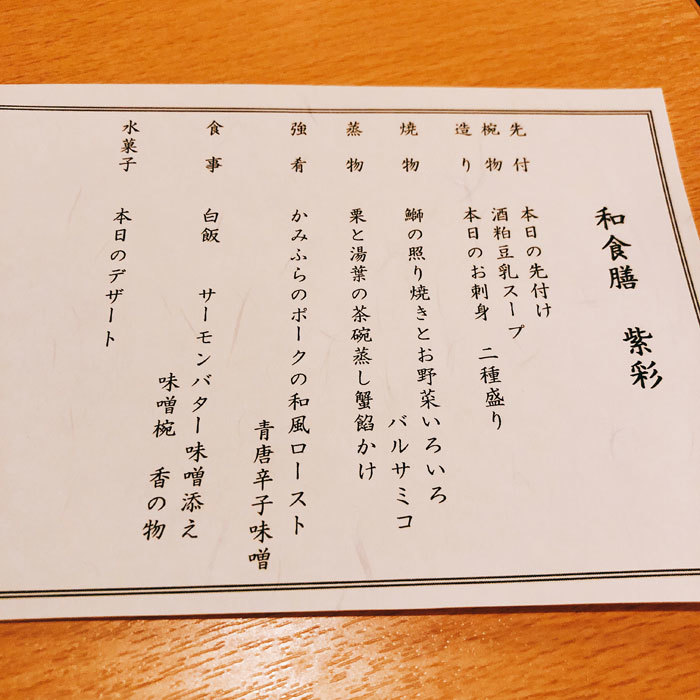 和食膳 紫彩
先付 本日の先付け
椀物 酒粕豆乳スープ
造り 本日のお刺身 二種盛り
焼物 鰤の照り焼きとお野菜いろいろ
バルサミコ
蒸物 栗と湯葉の茶碗蒸し蟹餡かけ
強肴 かみふらのポークの和風ロースト
青唐辛子味噌
食事 白飯 サーモンバター味噌添え
味噌椀 香の物
水菓子 本日のデザート